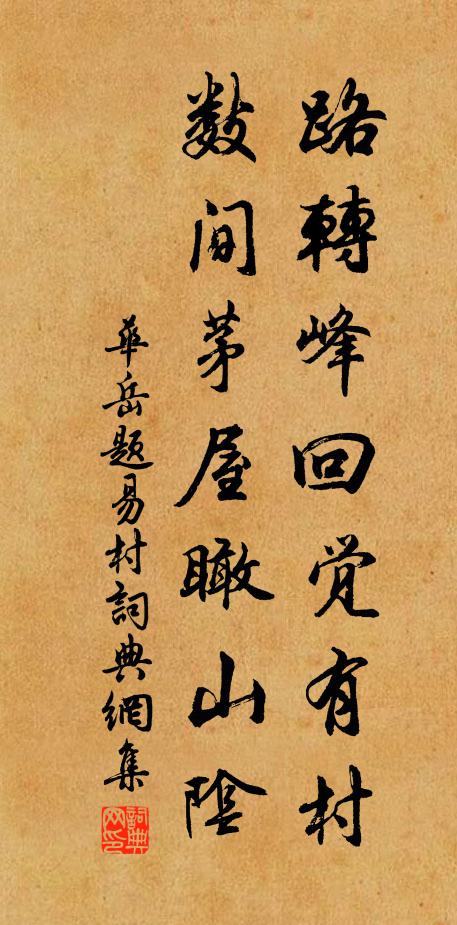 路轉峰回觉有村
数间茅屋瞰山陰
華岳題易村詞典網集
詞典
网印